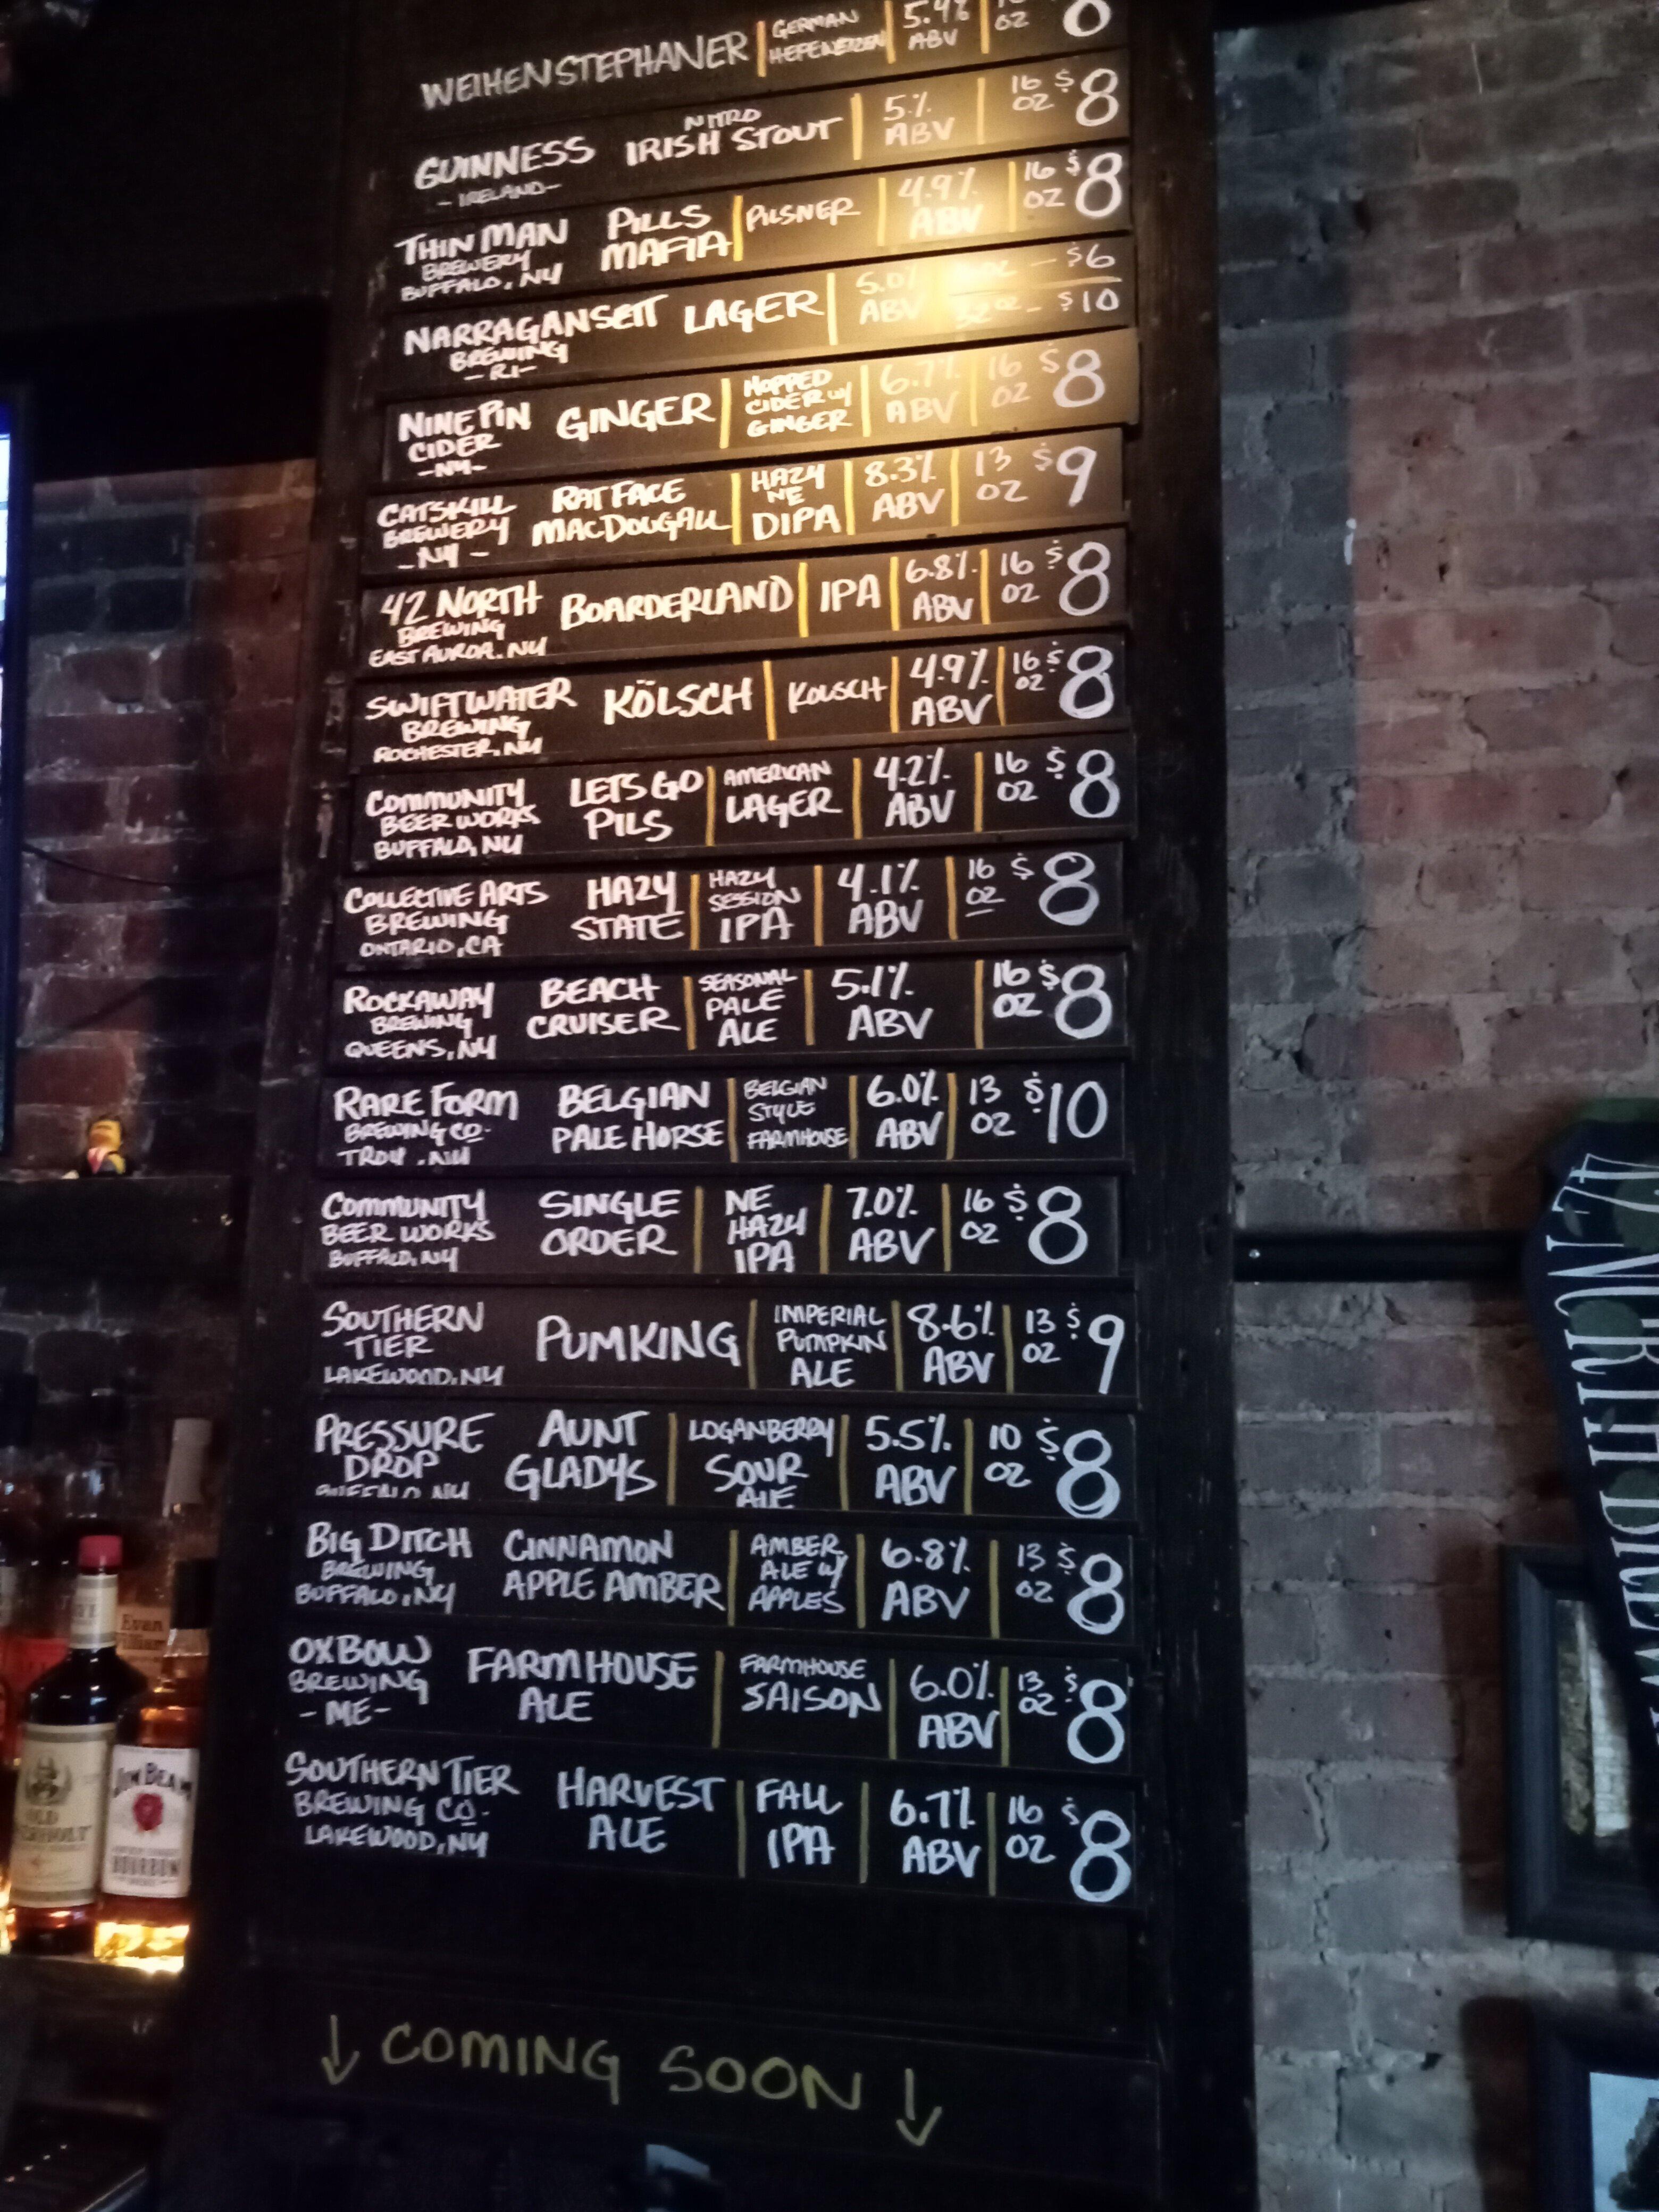 WEIHENSTEPHANER GERMAN HEFEWEIZEN 5.4% ABV OZ 8
GUINNESS NITRO IRISH STOUT 5% ABV 16 OZ $8
-IRELAND-
THIN MAN BREWERY PILLS MAFIA PILSNER 4.9% ABV 16 OZ $8
BUFFALO, NY
NARRAGANSETT LAGER 5.0% ABV OZ - $6
BREWING 32 OZ - $10
-RI-
NINE PIN CIDER GINGER HOPPED CIDER W/ GINGER 6.7% ABV 16 OZ $8
-NY-
CATSKILL BREWERY RATFACE MACDOUGALL HAZY NE DIPA 8.3% ABV 13 OZ $9
-NY-
42 NORTH BREWING BOARDERLAND IPA 6.8% ABV 16 OZ $8
EAST AUROA, NY
SWIFTWATER BREWING KÖLSCH KOLSCH 4.9% ABV 16 OZ $8
ROCHESTER, NY
COMMUNITY BEER WORKS LETS GO PILS AMERICAN LAGER 4.2% ABV 16 OZ $8
BUFFALO, NY
COLLECTIVE ARTS BREWING HAZY STATE HAZY SESSION IPA 4.1% ABV 16 OZ $8
ONTARIO, CA
ROCKAWAY BREWING BEACH CRUISER SEASONAL PALE ALE 5.1% ABV 16 OZ $8
QUEENS, NY
RARE FORM BREWING CO. BELGIAN PALE HORSE BELGIAN STYLE FARMHOUSE 6.0% ABV 13 OZ $10
TROY, NY
COMMUNITY BEER WORKS SINGLE ORDER NE HAZY IPA 7.0% ABV 16 OZ $8
BUFFALO, NY
SOUTHERN TIER PUMKING IMPERIAL PUMPKIN ALE 8.6% ABV 13 OZ $9
LAKEWOOD, NY
PRESSURE DROP AUNT GLADYS LOGANBERRY SOUR ALE 5.5% ABV 10 OZ $8
BUFFALO NY
BIG DITCH BREWING CINNAMON APPLE AMBER AMBER ALE W/ APPLES 6.8% ABV 13 OZ $8
BUFFALO, NY
OXBOW BREWING FARMHOUSE ALE FARMHOUSE SAISON 6.0% ABV 13 OZ $8
-ME-
SOUTHERN TIER BREWING CO. HARVEST ALE FALL IPA 6.7% ABV 16 OZ $8
LAKEWOOD, NY
↓ COMING SOON ↓
Evan Williams
JIM BEAM
BOURBON
OLD
42 NORTH